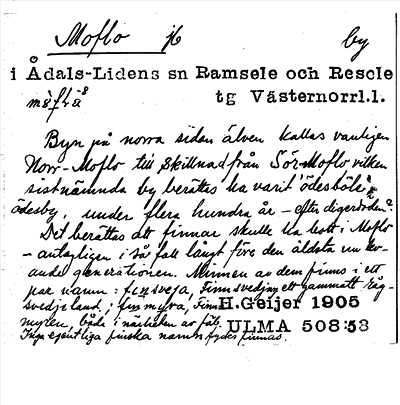 Moflo jb by
i Ådals-Lidens sn Ramsele och Resele
tg Västernorrl.l.
Byn på norra sidan älven kallas vanligen
Norr-Moflo till skillnad från Sör-Moflo vilken
sistnämnda by berättas ha varit "ödesböle",
ödesby, under flera hundra år – efter digerdöden?
Det berättas att finnar skulle ha bott i Moflo
– antagligen i så fall långt före den äldsta nu lev-
ande generationen. Minnen av dem finns i ett
par namn: finsveja, Finnsvedjan ett gammalt råg-
svedjeland; finmyra, Finn-
myren, båda i närheten av
Inga egentliga finska namn tycks finnas.
H.Geijer 1905
ULMA 508:53